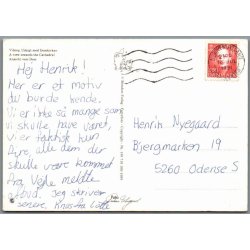 Viborg. Udsigt mod Domkirken
A view towards the Cathedral
Hej Henrik!
Her er et motiv
du burde kende.
Vi er ikke så mange som
vi skulle have været,
vi er faktisk kun
fire, alle dem der
skulle være kommet
fra Vejle meldte
afbud. Jeg skriver
senere, Knus fra Lotte
Henrik Nyegaard
Bjergmarken 19
5260 Odense S